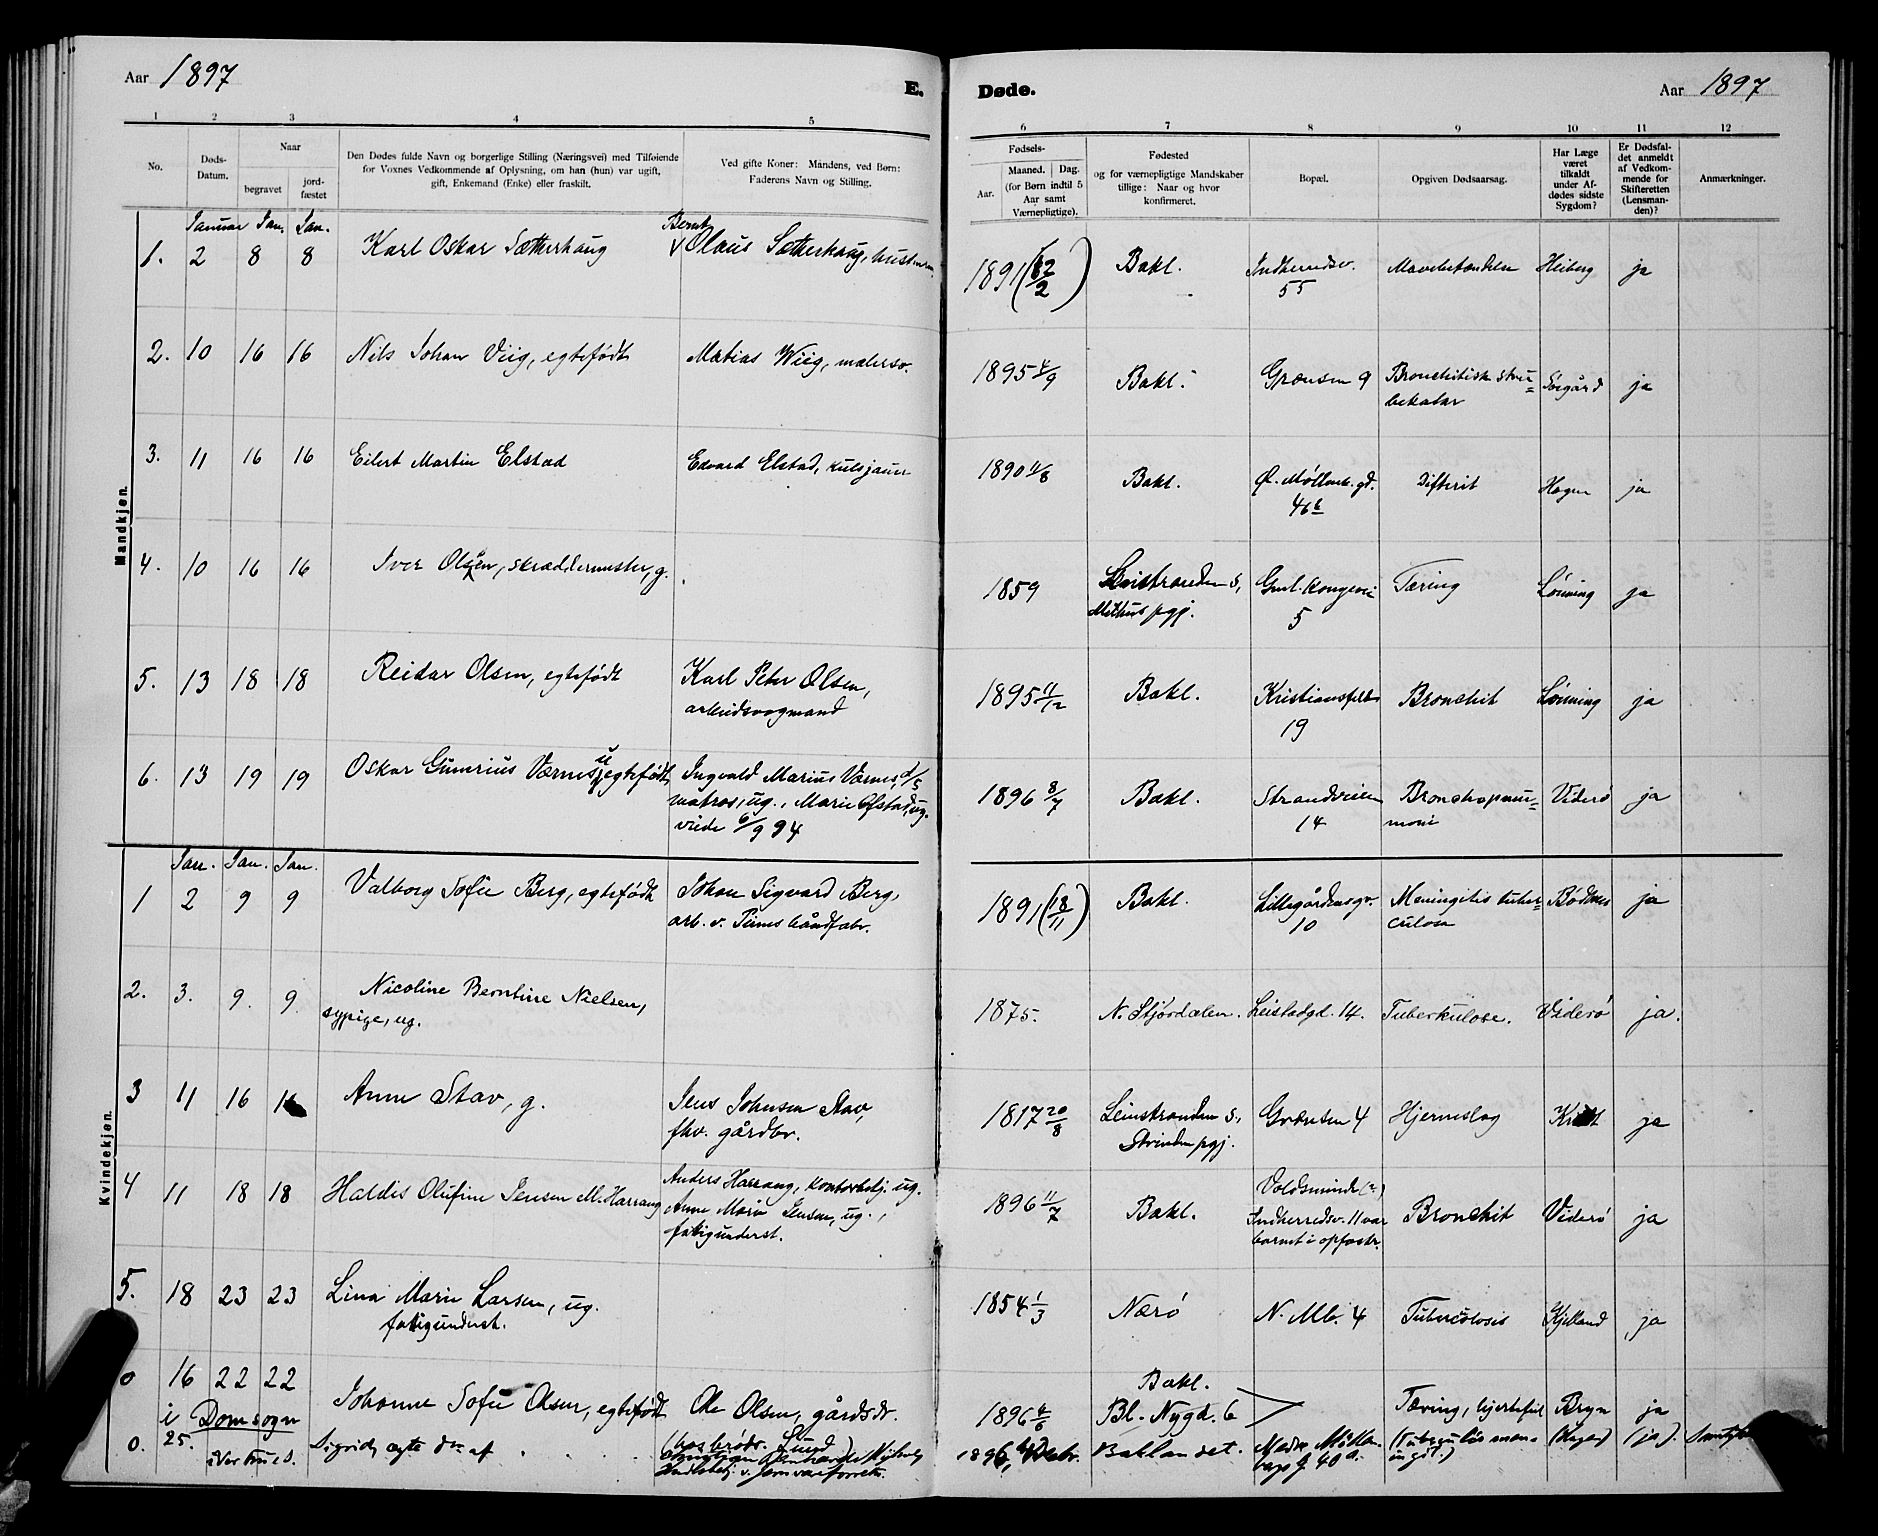 Aar 1897
E.
Døde.
Aar 1897
1 2 3 4 5 6 7 8 9 10 11 12
No.
Døds-Datum.
Naar
begravet
jord-fæstet
Den Dødes fulde Navn og borgerlige Stilling (Næringsvei) med Tilføiende
for Voxnes Vedkommende af Oplysning, om han (hun) var ugift,
gift, Enkemand (Enke) eller fraskilt.
Ved gifte Koner: Mandens, ved Børn:
Faderens Navn og Stilling.
Fødsels-
Aar.
Maaned. Dag.
(for Børn indtil 5
Aar samt
Værnepligtige).
Fødested
og for værnepligtige Mandskaber
tillige: Naar og hvor
konfirmeret.
Bopæl.
Opgiven Dødsaarsag.
Har Læge
været
tilkaldt
under Af-
dødes sidste
Sygdom?
Er Dødsfal-
det anmeldt
af Vedkom-
mende for
Skifteretten
(Lensman-
den)?
Anmærkninger.
Mandkjøn.
Januar Jan. Jan.
1. 2 8 8 Karl Oskar Sætherhaug Bernt Olaus Sætherhaug, 1891 (12/2) Bakl. Indherredsv. 55 Heiberg ja
2. 10 16 16 Nils Johan Viig, egtefødt Matias Wiig, malersv. 1895 4/9 Bakl. Grænsen 9 Søegård ja
3. 11 16 16 Eilert Martin Elstad Edvard Elstad, kulsjauer 1890 11/8 Bakl. Ø. Møllenb. gd. 46 b Difterit Hagen ja
4. 10 16 16 Iver Olsen, skræddermester, g. 1859 Leinstranden s, Melhus pgj. Gml. Kongevei 5 Tæring Lønning ja
5. 13 18 18 Reidar Olsen, egtefødt Karl Peter Olsen,
arbeidsvogmand 1895 11/12 Bakl. Kristiansfeldt 19 Bronchit Lønning ja
6. 13 19 19 Oskar Gunerius Værnes, uegtefødt, Ingvald Marius Værnes,
matros, ug., Marie Ofstad, ug.
viede 6/9 94 1896 8/7 Bakl. Strandveien 14 Bronchopneu=
moni Viderö ja
Kvindekjøn.
Jan. Jan. Jan.
1 2 9 9 Valborg Sofie Berg, egtefødt Johan Sigvard Berg,
arb. v. 1891 (18/11) Bakl. Lillegårdensgr. 10 Meningitis tuber=
culosa ja
2. 3. 9. 9. Nicoline Berntine Nielsen,
sypige, ug. 1875. N. Stjørdalen. Leistadgd. 14. Tuberkulose. Viderö ja.
3 11 16 16 Anne Stav, g. Jens Johnsen Stav,
fhv. gårdbr. 1817 20/8 Leinstranden s,
Strinden pgj. Grænsen 4 Hjerneslag ja
4 11 18 18 Haldis Olufine Jensen M. Harrang Anders Harrang, kontorbetj. ug.
Anne Marie Jensen, ug.,
fatigunderst. 1896 11/7 Bakl. Voldsminde
Indherredsv. 11 var
barnet i opfostr. Bronchit Viderö ja
5. 18 23 23 Lina Marie Larsen, ug.
fatigunderst. 1854 1/3 Nærö N. Mb. 4 Tuberculosis Kjelland ja
0 16 22 22 Johanne Sofie Olsen, egtefødt Ole Olsen, gårdsdr. 1896 Bakl.
Bl. Nygd. 6 Tæring, hjertefeil Bryn ja
i Domsogn
0. 25. Sigrid, egte dtr af 1896, Baklandet. (ja).